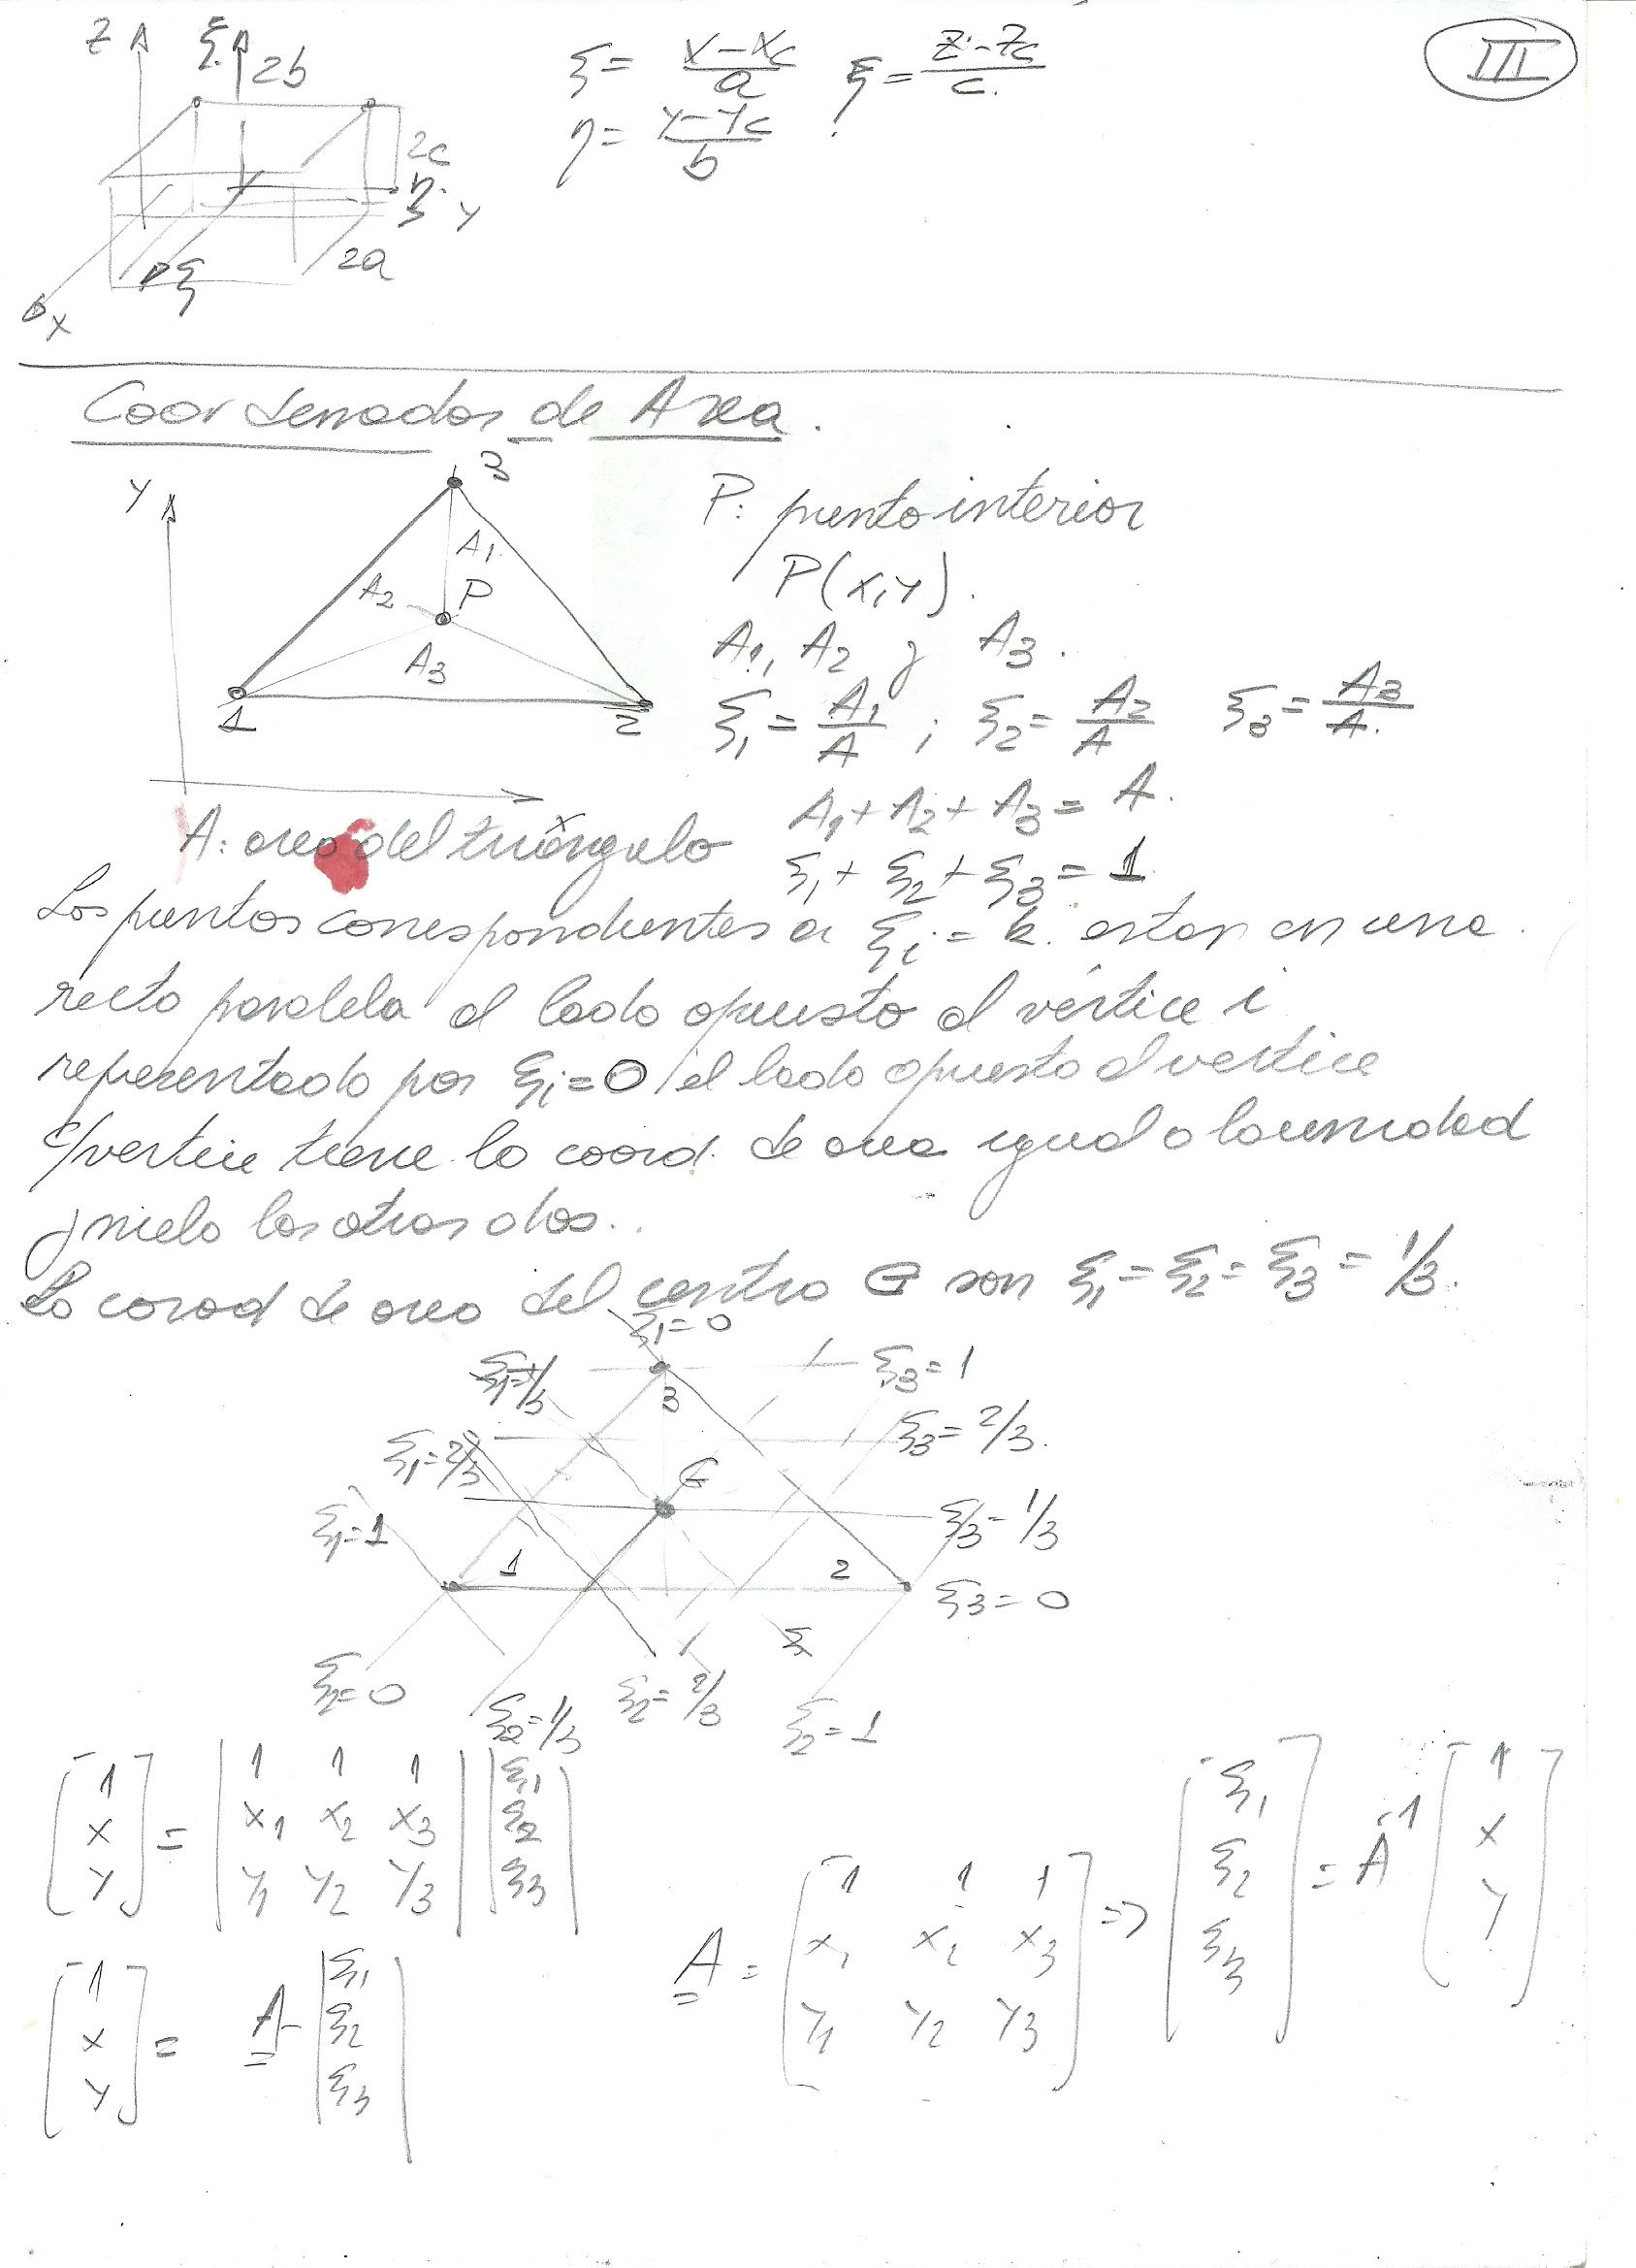 III
Z ξ 2b
ξ = (x - xc)/a ξ = (z - zc)/c.
η = (y - yc)/b
2c
η.
Y
2a
ξ
X
Coordenadas de Area.
Y 3
A1
A2 P
A3
1 2
X
P: punto interior
P(x,y).
A1, A2 y A3.
ξ1 = A1/A ; ξ2 = A2/A ξ3 = A3/A.
A1 + A2 + A3 = A.
A: area del triángulo
ξ1 + ξ2 + ξ3 = 1
Los puntos correspondientes a ξi = k. estan en una.
recta paralela al lado opuesto al vértice i
representado por ξi = 0 el lado opuesto al vertice
c/vertice tiene la coord. de area igual a la unidad
y nula las otras dos.
La coord de area del centro G son ξ1 = ξ2 = ξ3 = 1/3.
ξ1 = 0
ξ1 = 1/3 3 ξ3 = 1
ξ1 = 2/3 ξ3 = 2/3.
G
ξ1 = 1 ξ3 = 1/3
1 2
ξ3 = 0
ξ
ξ2 = 0 ξ2 = 1/3 ξ2 = 2/3 ξ2 = 1
[1 x y] = |1 1 1 x1 x2 x3 y1 y2 y3| |ξ1 ξ2 ξ3|
A = [1 1 1 x1 x2 x3 y1 y2 y3] => [ξ1 ξ2 ξ3] = A-1 [1 x y]
[1 x y] = A |ξ1 ξ2 ξ3|